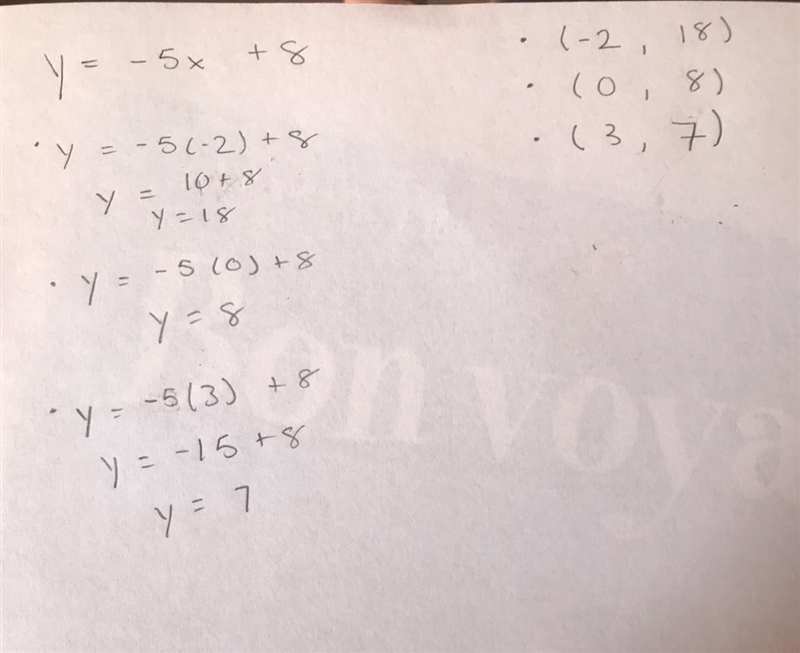 y = -5x + 8
• y = -5(-2) + 8
y = 10 + 8
y = 18
• y = -5(0) + 8
y = 8
• y = -5(3) + 8
y = -15 + 8
y = 7
• (-2, 18)
• (0, 8)
• (3, 7)
Bon voya